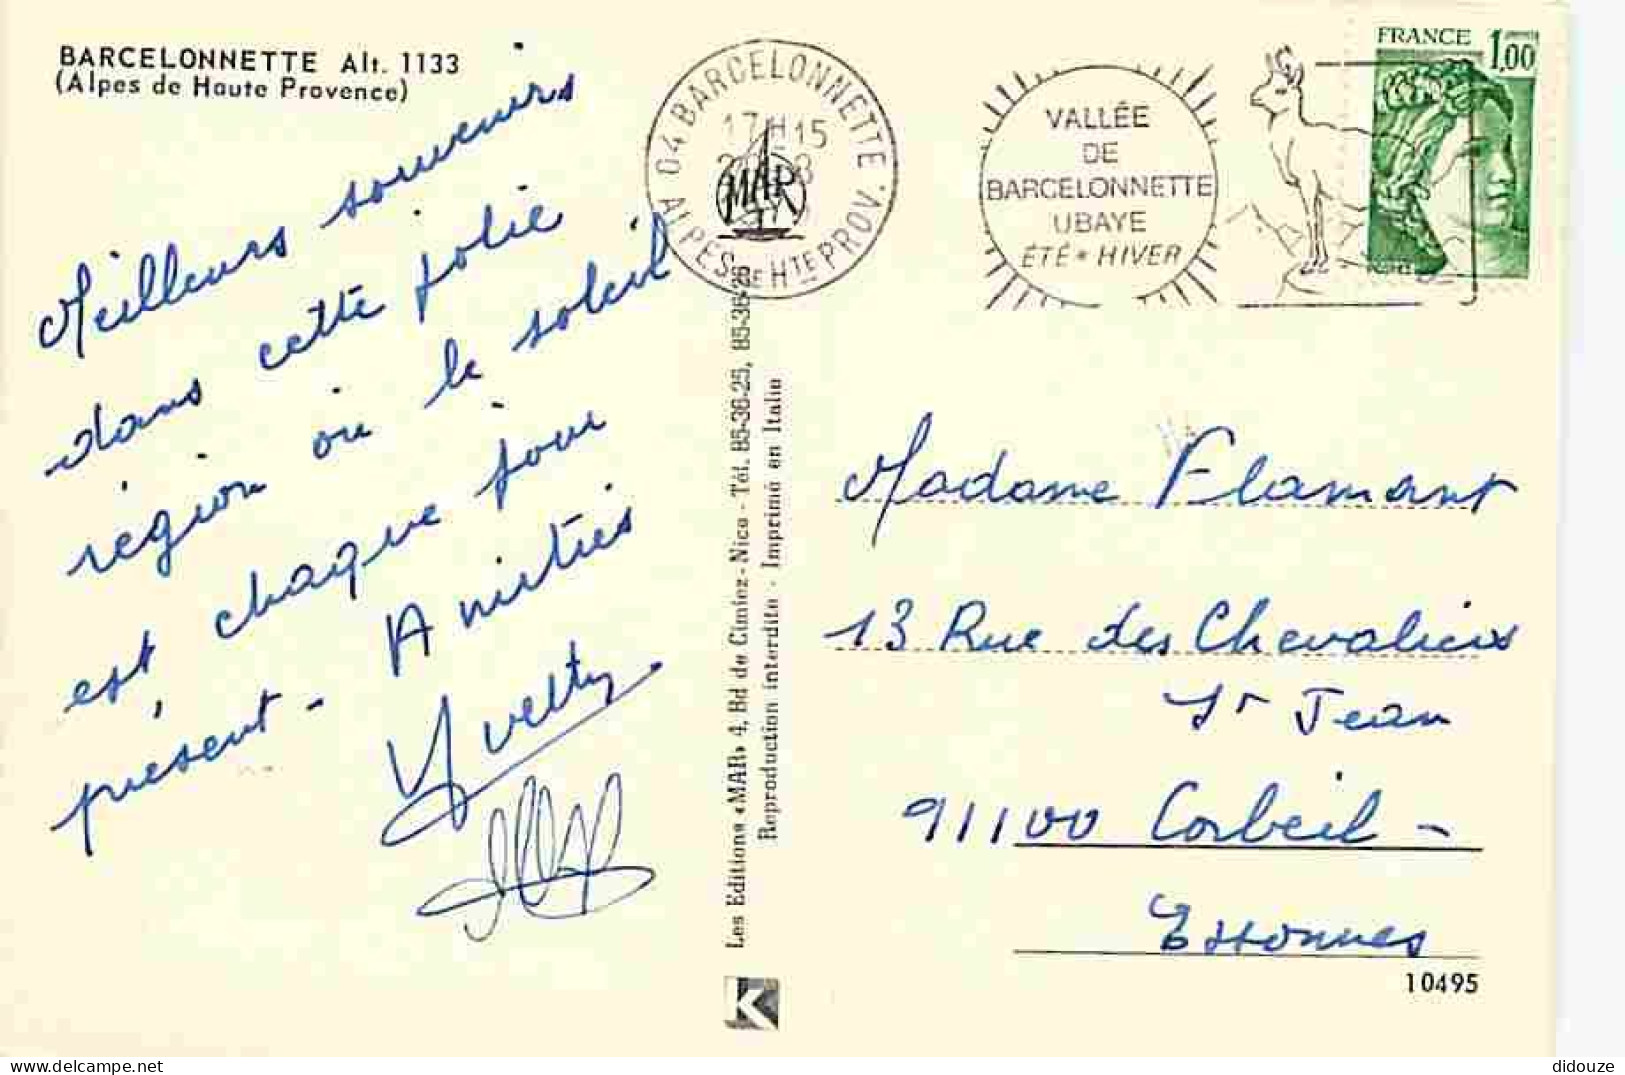 BARCELONNETTE Alt. 1133
(Alpes de Haute Provence)
Meilleurs souvenirs
dans cette jolie
région où le soleil
est chaque jour
présent - Amitiés
Yvette
04 BARCELONNETTE
ALPES DE HTE PROV.
17H15
MAR
VALLÉE
DE
BARCELONNETTE
UBAYE
ÉTÉ * HIVER
FRANCE 1,00
Les Editions «MAR» 4, Bd de Cimiez - Nice - Tél. 85-36-25, 85-36-26
Reproduction interdite - Imprimé en Italie
Madame Flamant
13 Rue des Chevaliers
St Jean
91100 Corbeil -
Essonnes
10495
K
didouze